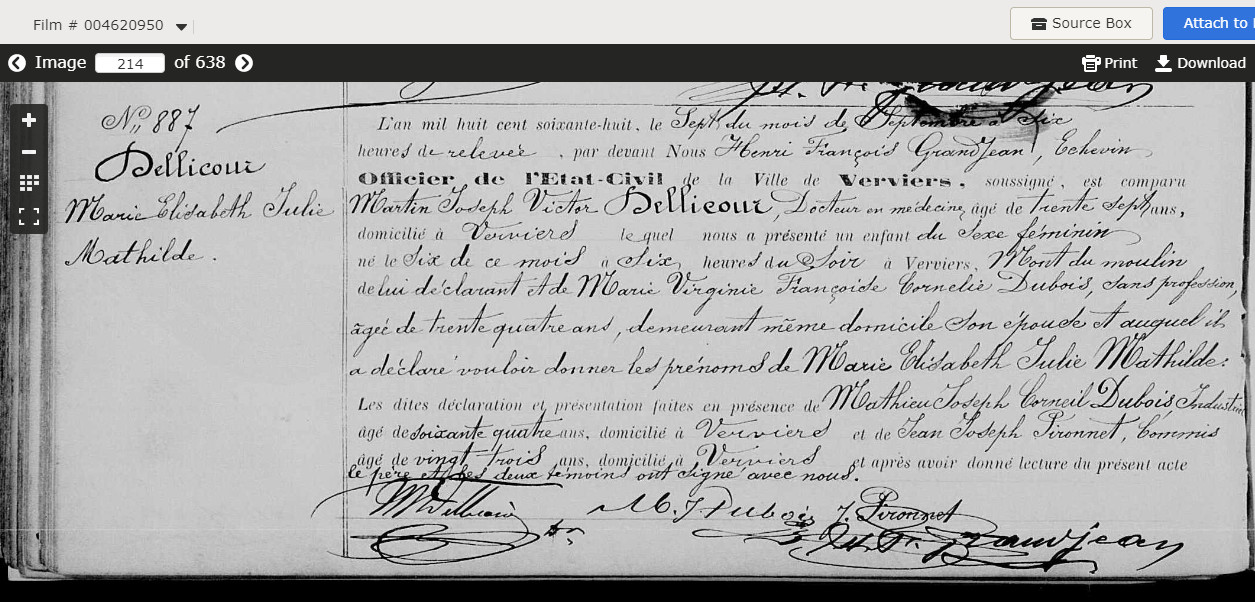 Film # 004620950
Source Box
Attach to
Image 214 of 638
Print
Download
N° 887
Dellicour
Marie Elisabeth Julie
Mathilde.
L'an mil huit cent soixante-huit, le Sept du mois de Septembre à Six
heures de relevée, par devant Nous Henri François GrandJean, Echevin
Officier de l'Etat-Civil de la Ville de Verviers, soussigné, est comparu
Martin Joseph Victor Dellicour, Docteur en médecine, âgé de trente Sept ans,
domicilié à Verviers lequel nous a présenté un enfant du Sexe féminin
né le Six de ce mois à Six heures du Soir à Verviers, Mont du moulin
de lui déclarant et de Marie Virginie Françoise Cornelie Dubois, sans profession,
âgée de trente quatre ans, demeurant même domicile Son épouse et auquel il
a déclaré vouloir donner les prénoms de Marie Elisabeth Julie Mathilde:
Les dites déclaration et présentation faites en présence de Mathieu Joseph Corneil Dubois, Industriel
âgé de soixante quatre ans, domicilié à Verviers et de Jean Joseph Pironnet, Commis
âgé de vingt trois ans, domicilié à Verviers et après avoir donné lecture du présent acte
le père et les deux témoins ont signé avec nous.
M. J. Dubois J. Pironnet
H. F. Grandjean